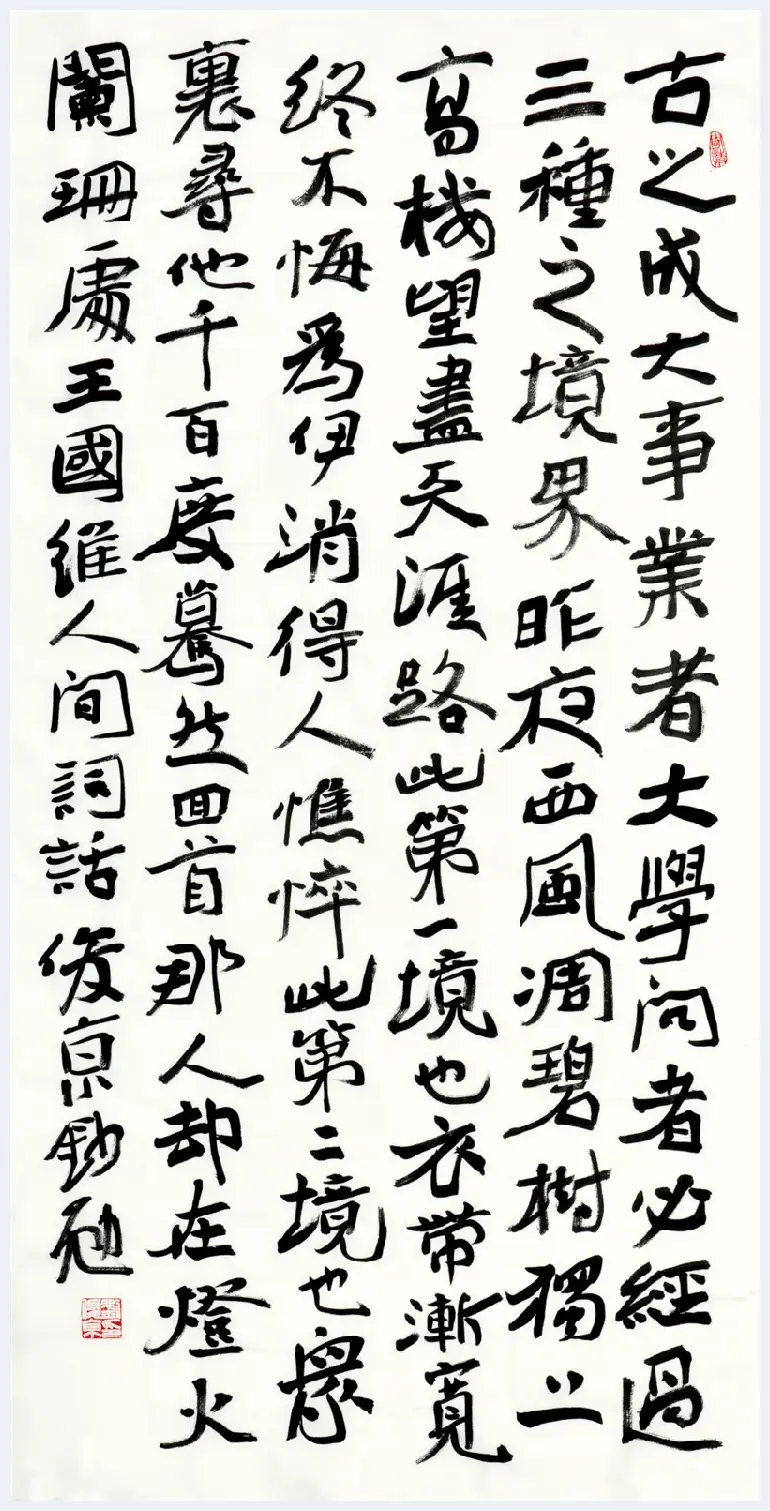 古之成大事業者大學問者必經過
三種之境界昨夜西風凋碧樹獨上
高樓望盡天涯路此第一境也衣帶漸寬
終不悔爲伊消得人憔悴此第二境也眾
裏尋他千百度驀然回首那人却在燈火
闌珊處王國維人間詞話俊京鈔